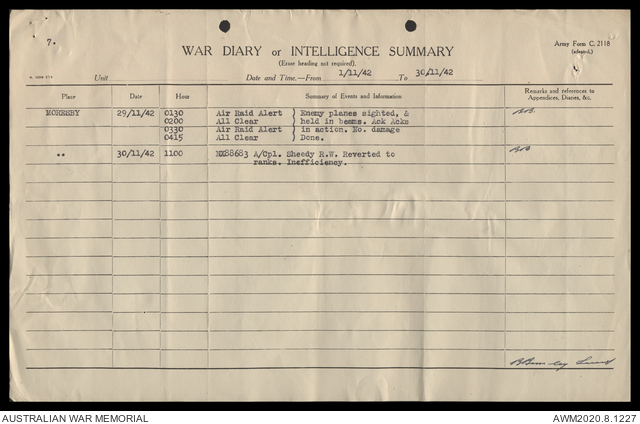 7.
Army Form C. 2118
(adapted.)
WAR DIARY or INTELLIGENCE SUMMARY
(Erase heading not required).
Unit
Date and Time.—From 1/11/42 To 30/11/42
Place Date Hour Summary of Events and Information Remarks and references to
Appendices, Diaries, &c.
MORESBY 29/11/42 0130 Air Raid Alert } Enemy planes sighted, & BB.
0200 All Clear held in beams. Ack Acks
0330 Air Raid Alert } in action. No. damage
0415 All Clear Done.
" 30/11/42 1100 MX88683 A/Cpl. Sheedy R.W. Reverted to
ranks. Inefficiency.
AUSTRALIAN WAR MEMORIAL AWM2020.8.1227